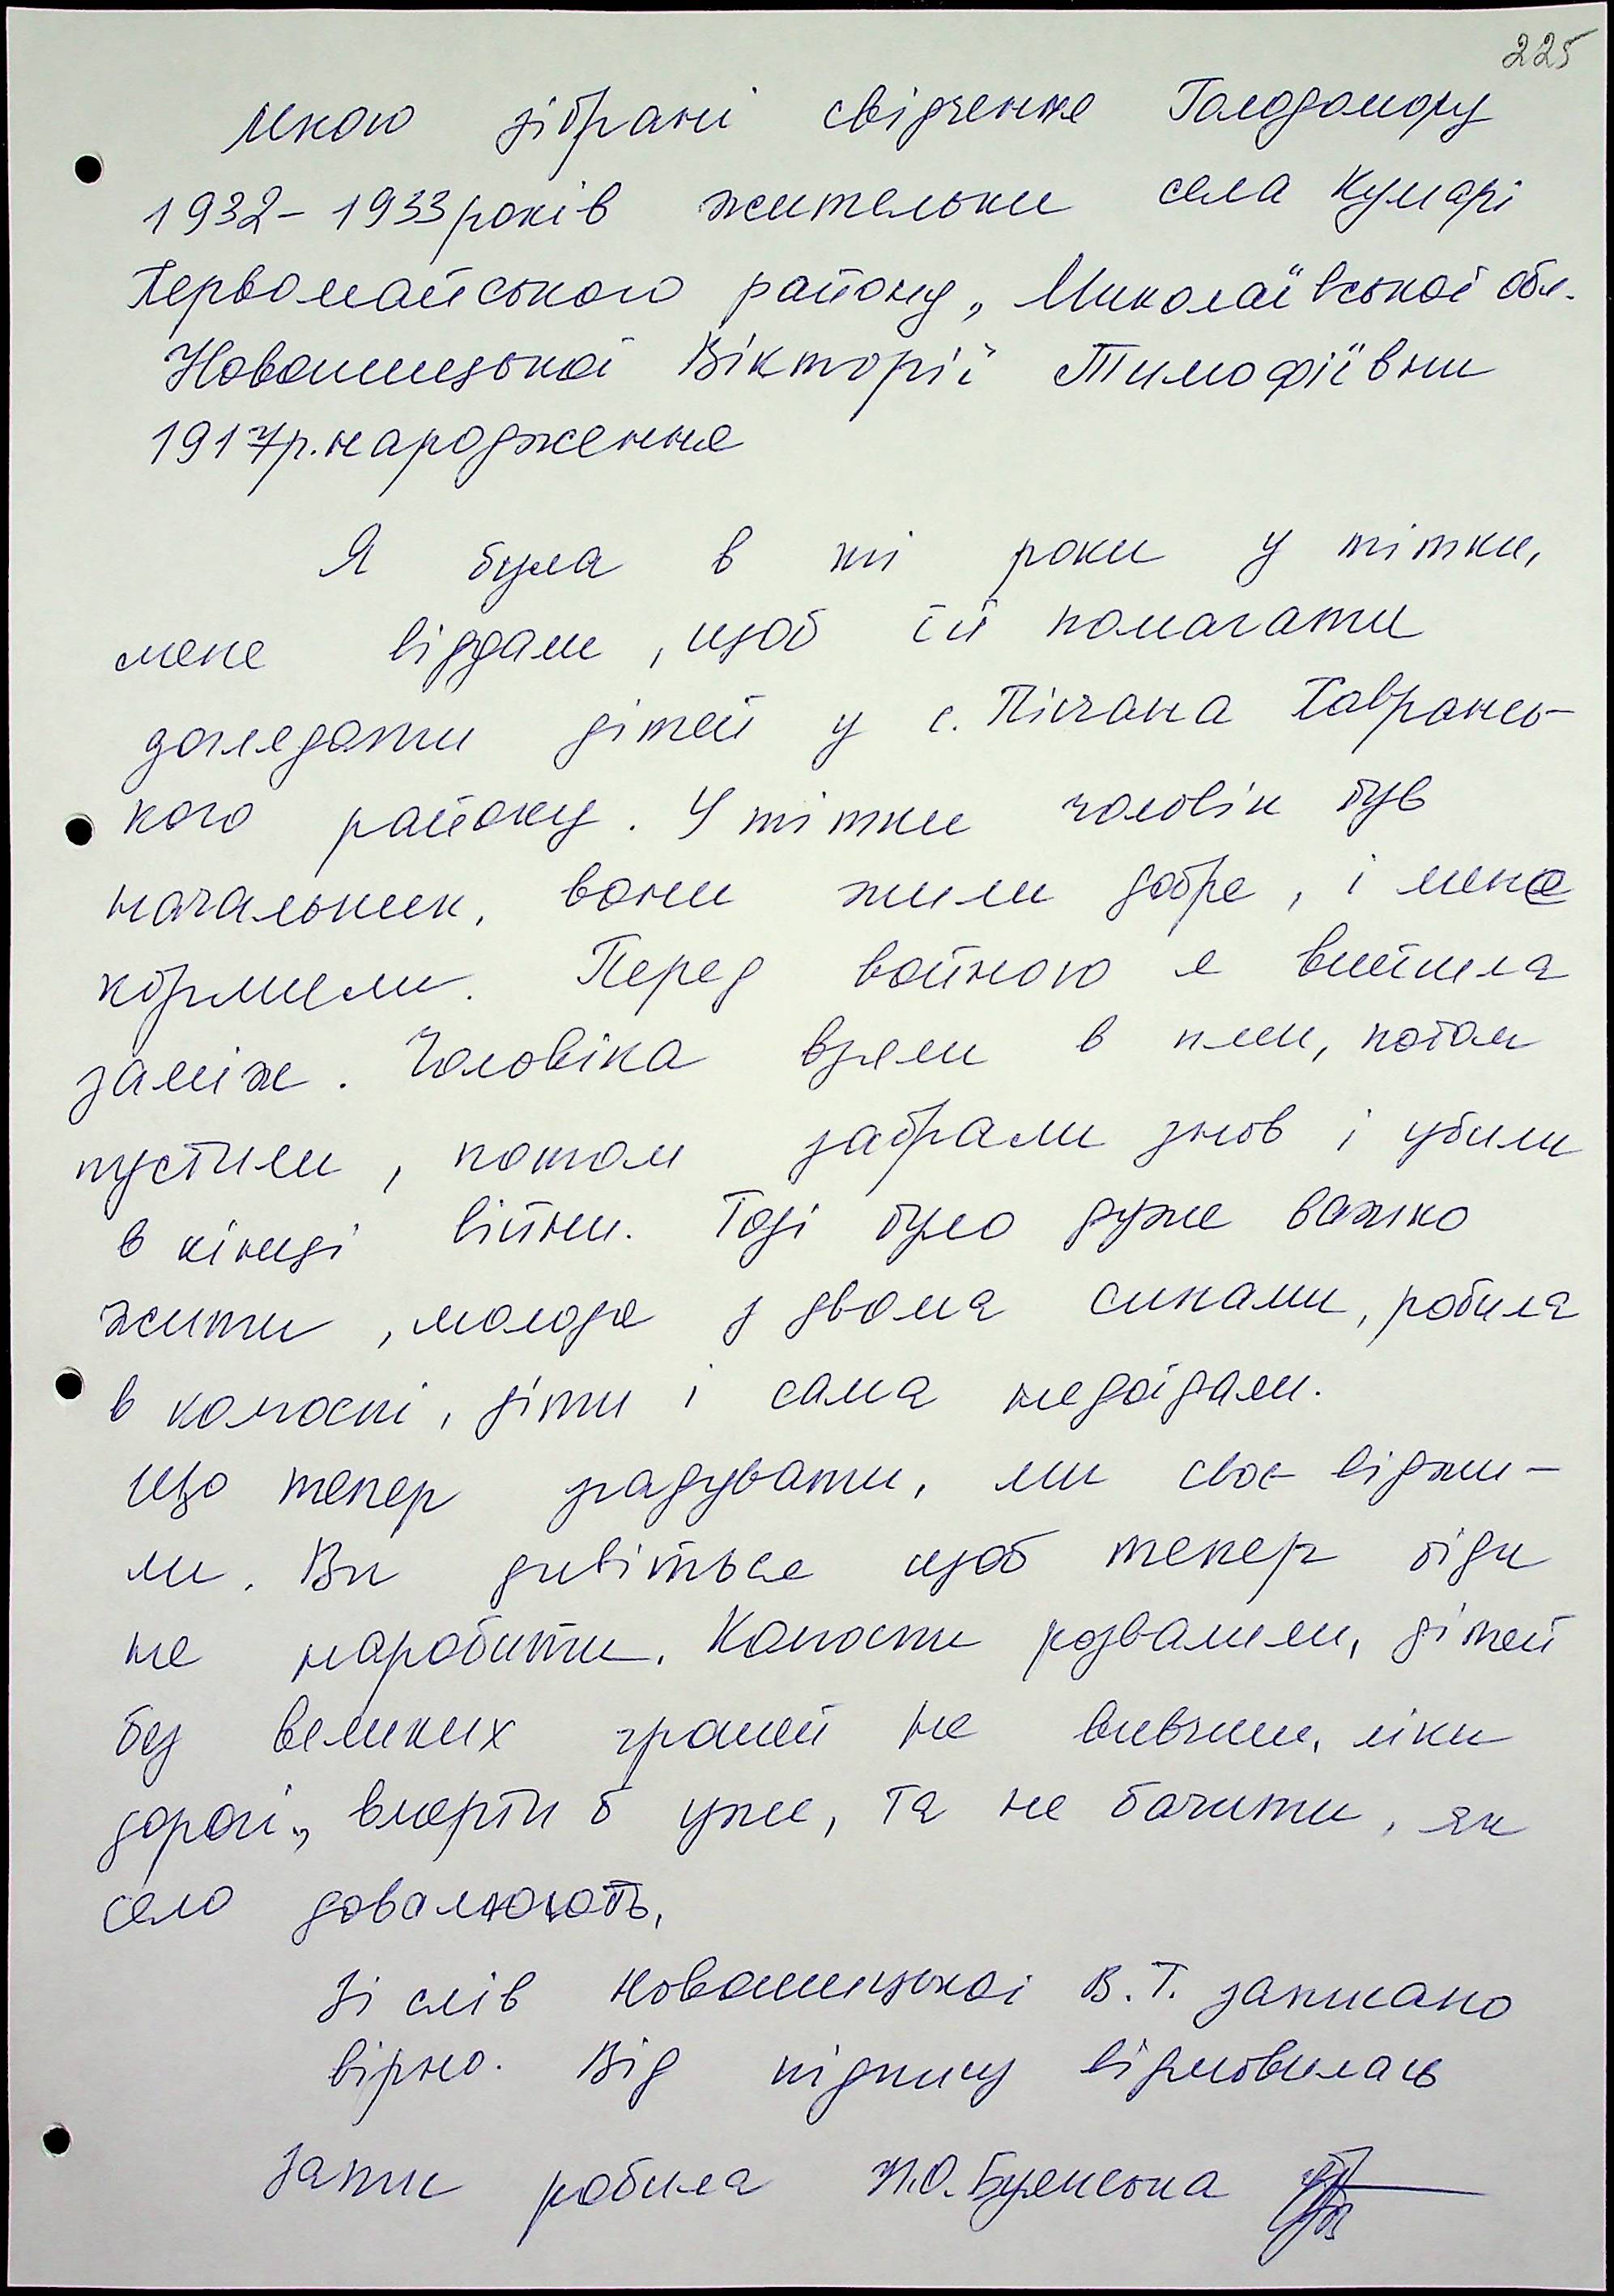 225
Мною зібрані свідчення Голодомору
1932-1933 років жительки села Кумарі
Первомайського району, Миколаївської обл.
Новошицької Вікторії Тимофіївни
1917р. народження
Я була в ті роки у тітки,
мене віддали, щоб їй помагати
доглядати дітей у с. Пісчана Хаврансь-
кого району. У тітки чоловік був
начальник, вони жили добре, і мене
кормили. Перед войною я вийшла
заміж. Чоловіка взяли в плєн, потом
пустили, потом забрали знов і убили
в кінці війни. Тоді було дуже важко
жити, молода з двома синами, робила
в колгоспі, діти і сама недоїдали.
Що тепер згадувати, ми своє віджи-
ли. Ви дивіться щоб тепер біди
не наробити. Колгоспи розвалили, дітей
без великих грошей не вивчиш, ліки
дорогі, вмерти б уже, та не бачити, як
село довалюють.
Зі слів Новошицької В.Т. записано
вірно. Від підпису відмовилась
Запис робила Н.О. Буянська